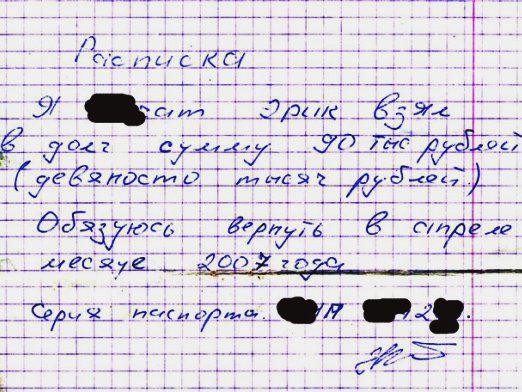 Расписка
Я эрик взял
в долг сумму 90 тыс рублей
(девяносто тысяч рублей.)
Обязуюсь вернуть в апреле
месяце 2007 года
Серия паспорта.